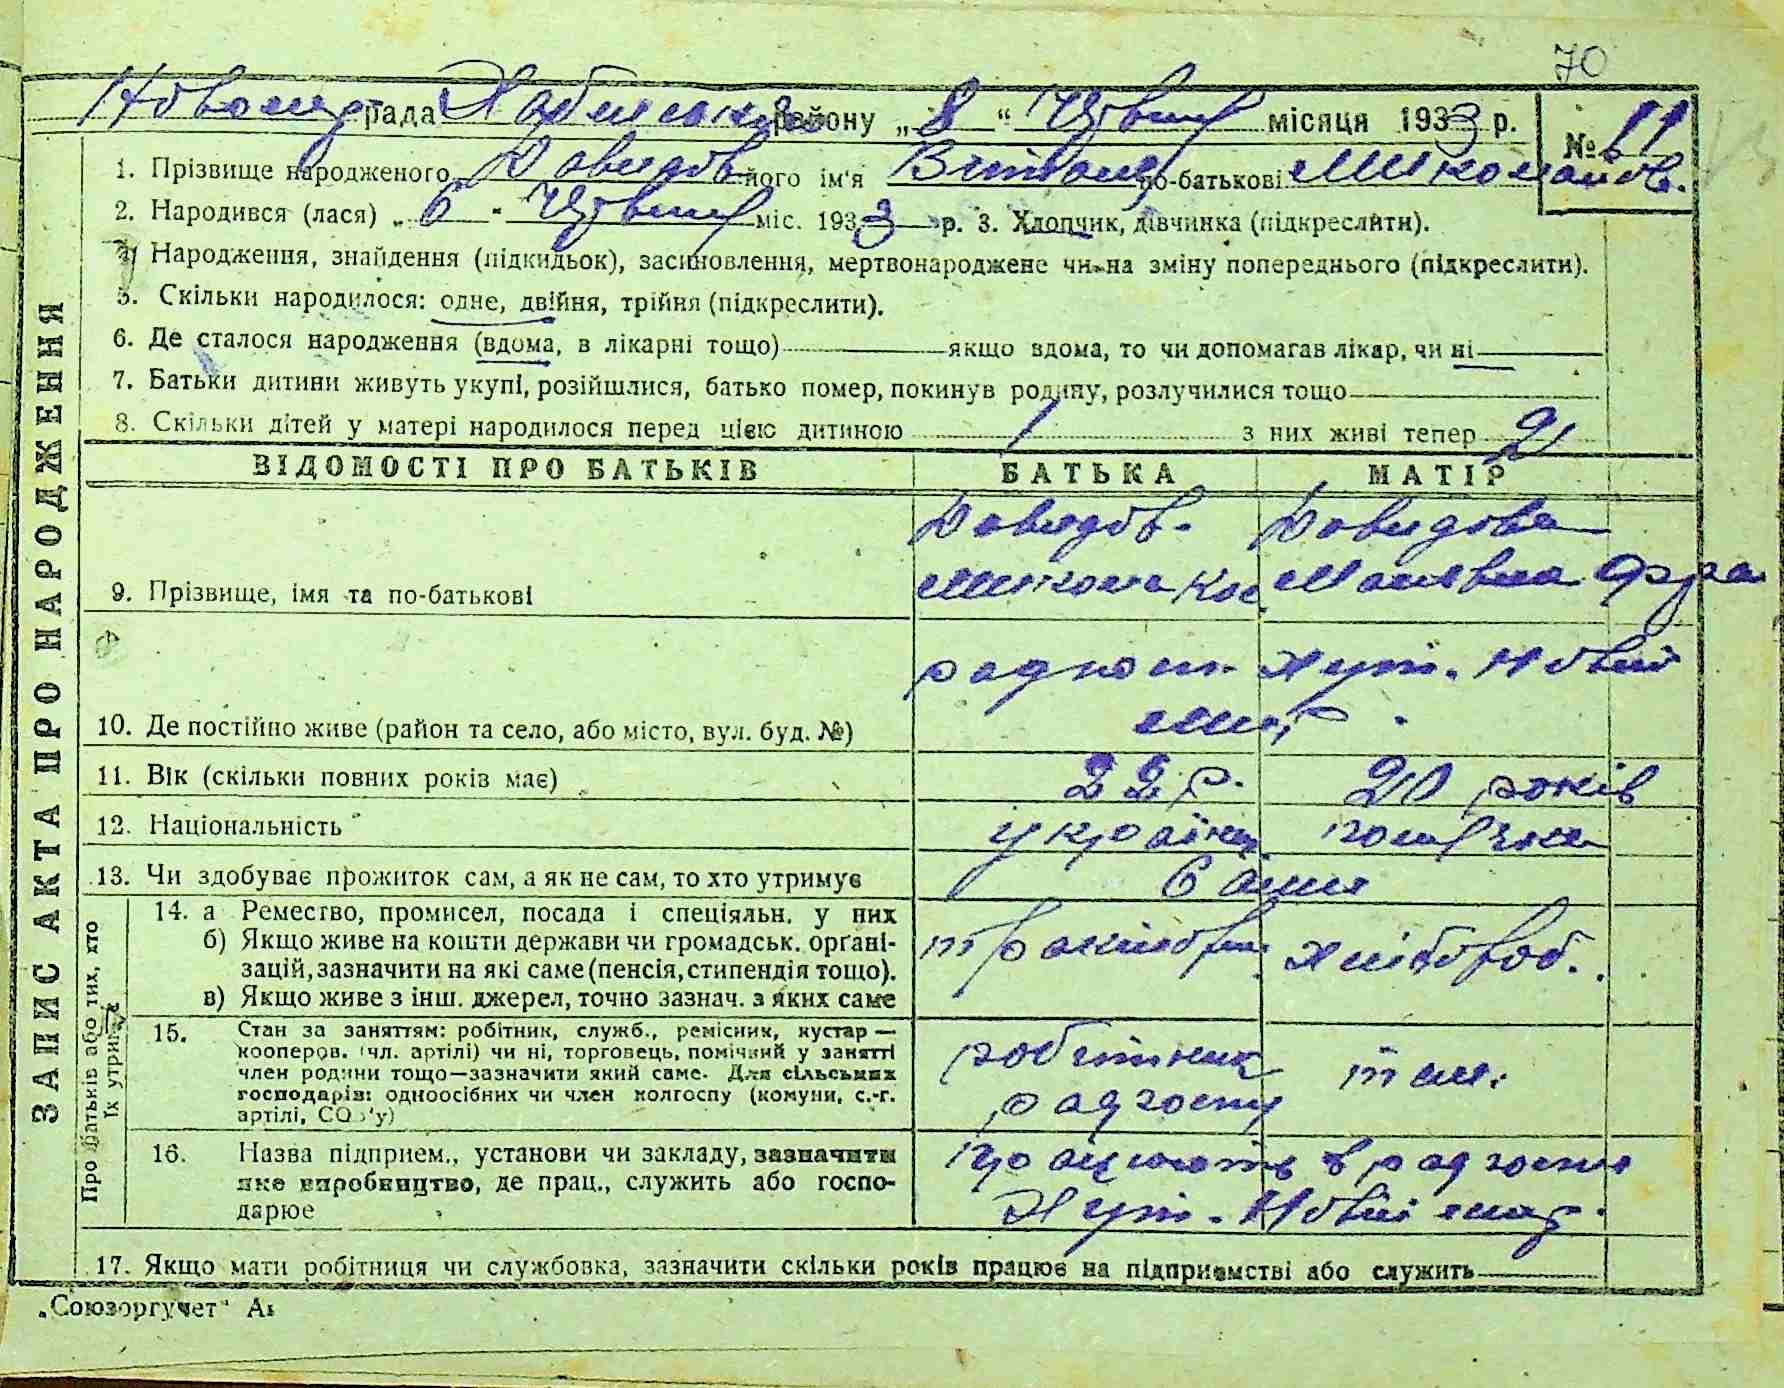 70
рада району „8“ Червня місяця 1933 р. № 11
1. Прізвище народженого Давидов його ім'я Віталій по-батькові Миколайов.
2. Народився (лася) „6“ Червня міс. 1933 р. 3. Хлопчик, дівчинка (підкреслити).
4. Народження, знайдення (підкидьок), засиновлення, мертвонароджене чи на зміну попереднього (підкреслити).
5. Скільки народилося: одне, двійня, трійня (підкреслити).
6. Де сталося народження (вдома, в лікарні тощо) якщо вдома, то чи допомагав лікар, чи ні
7. Батьки дитини живуть укупі, розійшлися, батько помер, покинув родину, розлучилися тощо
8. Скільки дітей у матері народилося перед цією дитиною 1 з них живі тепер 2
ВІДОМОСТІ ПРО БАТЬКІВ БАТЬКА МАТІР
Давидов Давидова
9. Прізвище, імя та по-батькові Микола Кос.
радгосп Хут. Новий
10. Де постійно живе (район та село, або місто, вул. буд. №)
11. Вік (скільки повних років має) 22 р. 20 років
12. Національність українец
13. Чи здобуває прожиток сам, а як не сам, то хто утримує Самі
14. а Ремество, промисел, посада і спеціяльн. у них
б) Якщо живе на кошти держави чи громадськ. органі-
зацій, зазначити на які саме (пенсія, стипендія тощо).
в) Якщо живе з інш. джерел, точно зазнач. з яких саме
хлібороб.
15. Стан за заняттям: робітник, служб., ремісник, кустар —
кооперов. (чл. артілі) чи ні, торговець, помічний у занятті
член родини тощо—зазначити який саме. Для сільських
господарів: одноосібних чи член колгоспу (комуни, с.-г.
артілі, СОЗ'у)
робітник
радгоспу
16. Назва підприєм., установи чи закладу, зазначити
яке виробництво, де прац., служить або госпо-
дарює
працюють в радгоспі
Хут. Новий
17. Якщо мати робітниця чи службовка, зазначити скільки років працює на підприємстві або служить
ЗАПИС АКТА ПРО НАРОДЖЕННЯ
Про батьків або тих, хто
їх утримує
„Союзоргучет“